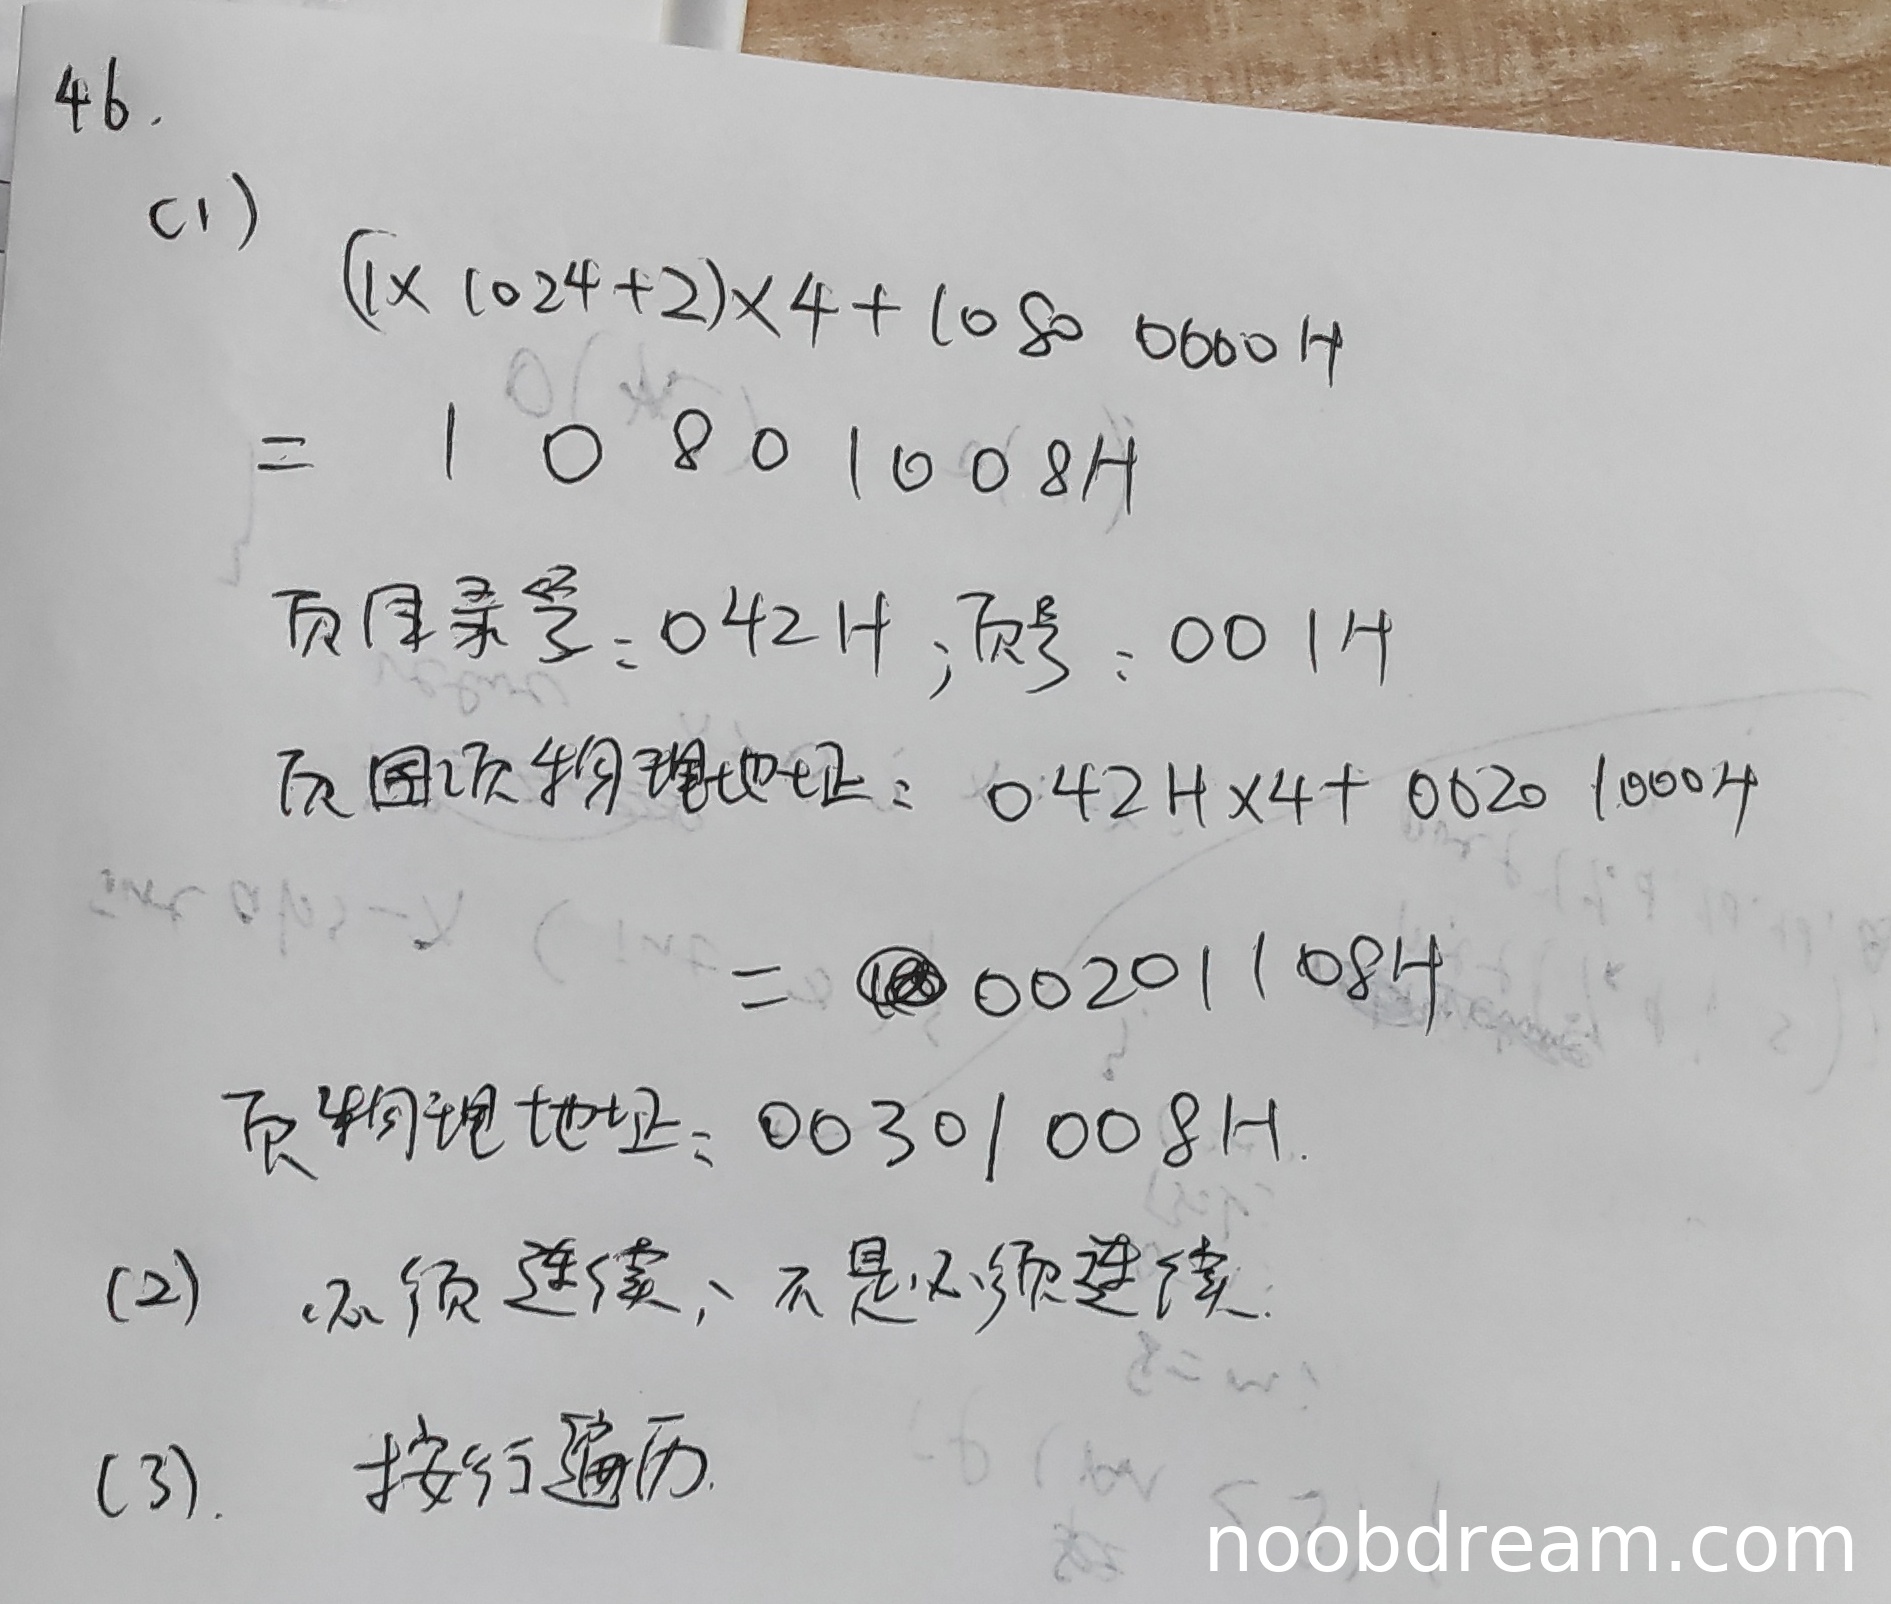 46.
(1)
(1×1024+2)×4+1080 0000H
= 10801008H
页目录号:042H;页号:001H
页目项物理地址:042H×4+0020 1000H
= 00201108H
页物理地址:00301008H.
(2) 必须连续、不是必须连续.
(3). 按行遍历.
noobdream.com